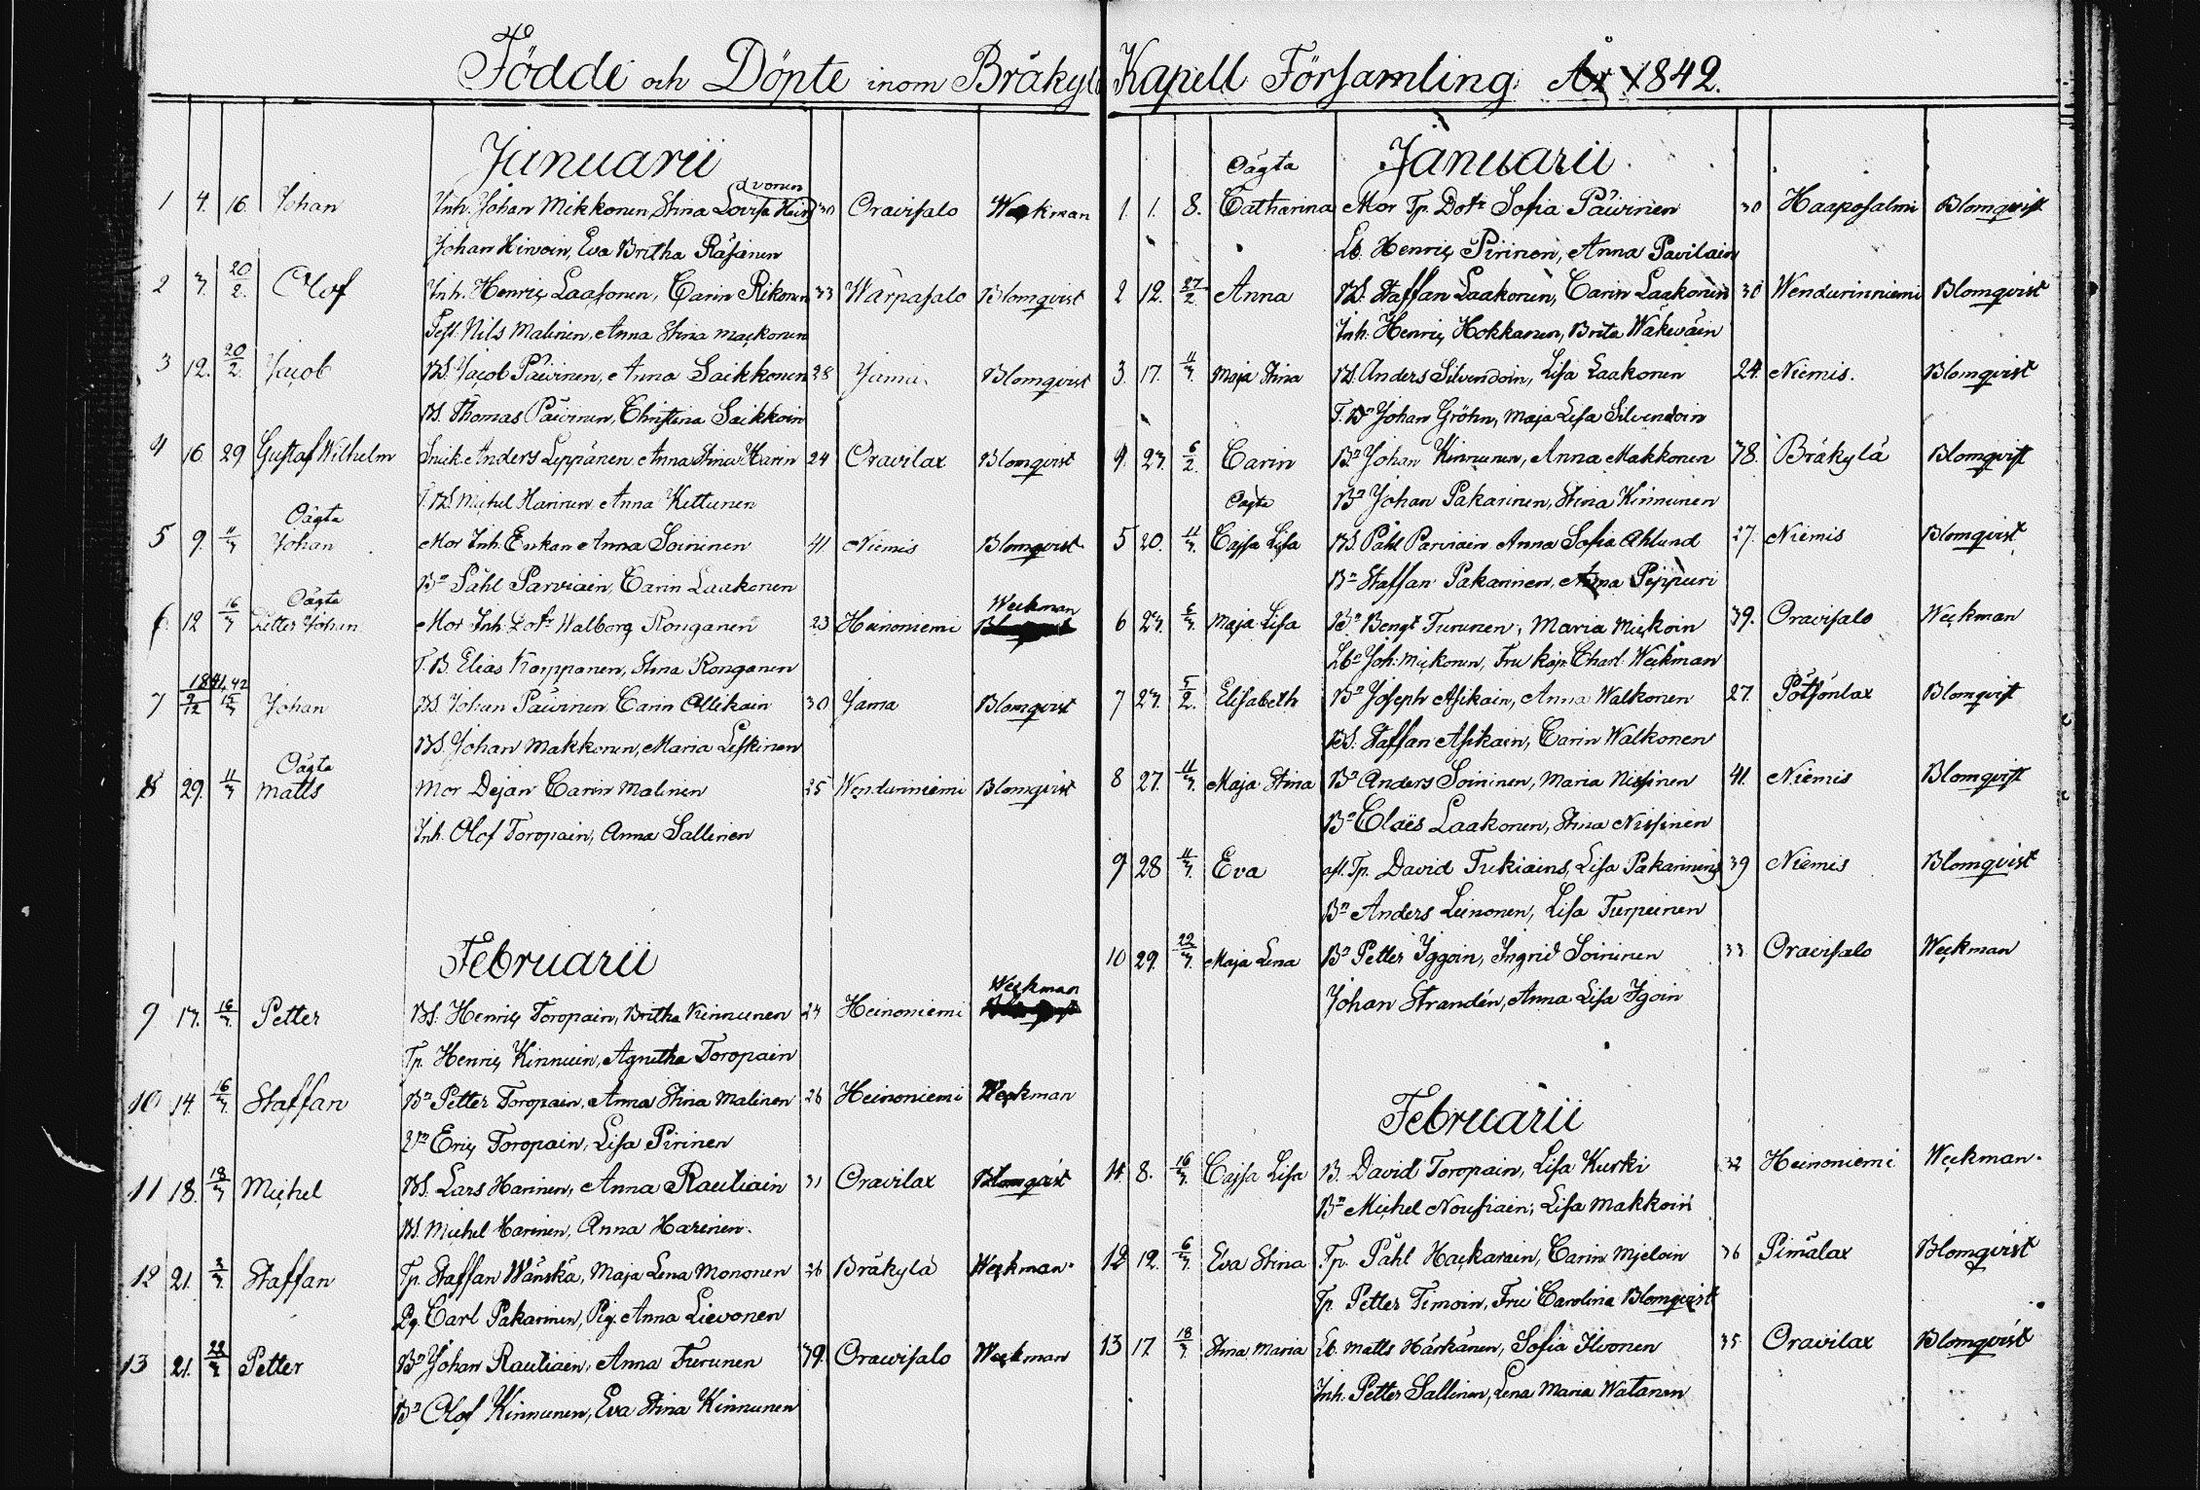 Födde och Döpte inom Bräkylä Kapell Församling År 1842.
Januarii
1 4. 16. Johan Inh. Johan Mikkonen, Stina Lovisa 30 Oravisalo Weckman
Johan Hirvoin, Eva Britha Räsänen
2 3. 20/2. Olof Inh. Henric Laasonen, Carin Rikonen 33 Wärpasalo Blomqvist
Nils Malinen, Anna Stina Mackonen
3 12. 20/2. Jacob BS. Jacob Päivinen, Anna Saikkonen 28 Jama. Blomqvist
BS. Thomas Päivinen, Christina Saikkoin
4 16 29 Gustaf Wilhelm Snick. Anders Leppänen Anna Stina Harin 24 Oravilax Blomqvist
Michel Harinen Anna Kettunen
Oägta
5 9. 11/3 Johan Mor Inh. Enkan Anna Soininen 41. Niemis Blomqvist
Bn Påhl Parviain, Carin Laakonen
Oägta Weckman
6 12 16/3 Petter Johan Mor Inh. Dotr Walborg Ronganen 23 Heinoniemi
T.B. Elias Karppanen, Stina Ronganen
1841, 42
7 9/12 15/3 Johan BS Johan Päivinen Carin Ollikain 30 Jama Blomqvist
BS. Johan Makkonen, Maria Leskinen
Oägta
8 29. 11/3 Matts Mor Dejan Carin Malinen 25 Wendurinniemi Blomqvist
Inh. Olof Toropain, Anna Sallinen
Februarii
Weckman
9 17. 16/3. Petter BS. Henric Toropain, Britha Kinnunen 24 Heinoniemi
Tp. Henric Kinnuin, Agnetha Toropain
10 14. 16/3. Staffan Bn Petter Toropain, Anna Stina Malinen 26 Heinoniemi Weckman
Eric Toropain, Lisa Pirinen
11 18. 18/3 Michel BS. Lars Harinen, Anna Rautiain 31 Oravilax Blomqvist
BS. Michel Harinen, Anna Harinen.
12 21. 2/3 Staffan Tp. Staffan Wänskä, Maja Lena Mononen 26 Bräkylä Weckman.
Dg. Carl Pakarinen, Pig. Anna Lievonen
13 21. 22/3 Petter Bn Johan Rautiain, Anna Turunen 39. Oravisalo Weckman
Bn Olof Kinnunen, Eva Stina Kinnunen
Januarii
Oägta
1. 1. 8. Catharina Mor Tp. Dotr Sofia Päivinen 30 Haaposalmi Blomqvist
Lb. Henric Pirinen, Anna Pavilain
2 12. 27/2 Anna BS. Staffan Laakonen, Carin Laakonen 30 Wendurinniemi Blomqvist
Inh. Henric Hokkanen, Brita Wäkeväin
3. 17. 11/3. Maja Stina BS. Anders Silvendoin, Lisa Laakonen 24. Niemis. Blomqvist
Johan Gröhn, Maja Lisa Silvendoin
4. 23. 6/2. Carin Bn Johan Kinnunen, Anna Makkonen 38. Bräkylä Blomqvist
Bn Johan Pakarinen, Stina Kinnunen
Oägta
5 20. 11/3. Cajsa Lisa BS. Påhl Parviain Anna Sofia Ahlund 27. Niemis Blomqvist
Bn Staffan Pakarinen, Anna Peppuri
6 23. 6/3. Maja Lisa Bn Bengt Turunen, Maria Mickoin 39. Oravisalo Weckman
Lbn Joh: Mickonen, Fru Kap: Charl: Weckman
7 23. 5/2. Elisabeth Bn Joseph Asikain, Anna Walkonen 27. Pötsönlax Blomqvist
BS. Staffan Asikain, Carin Walkonen
8 27. 11/3. Maja Stina Bn Anders Soininen, Maria Nissinen 41. Niemis Blomqvist
Bn Claës Laakonen, Stina Nissinen
9 28 11/3. Eva afl. Tp. David Tukiains, Lisa Pakarinens 39 Niemis Blomqvist
Bn Anders Leinonen, Lisa Turpeinen
10 29. 22/3. Maja Lena Bn Petter Iggoin, Ingrid Soininen 33 Oravisalo Weckman
Johan Strandén, Anna Lisa Igoin
Februarii
11. 8. 16/3. Cajsa Lisa B. David Toropain, Lisa Kurki 32 Heinoniemi Weckman.
Bn Michel Nousiain, Lisa Makkoin
12 12. 6/3 Eva Stina Tp. Påhl Hackarain, Carin Mjeloin 36 Pimälax Blomqvist
Tp. Petter Timoin, Fru Carolina Blomqvist
13 17. 18/3. Stina Maria Lb. Matts Härkänen, Sofia Ilvonen 35 Oravilax Blomqvist
Inh. Petter Sallinen, Lena Maria Watanen